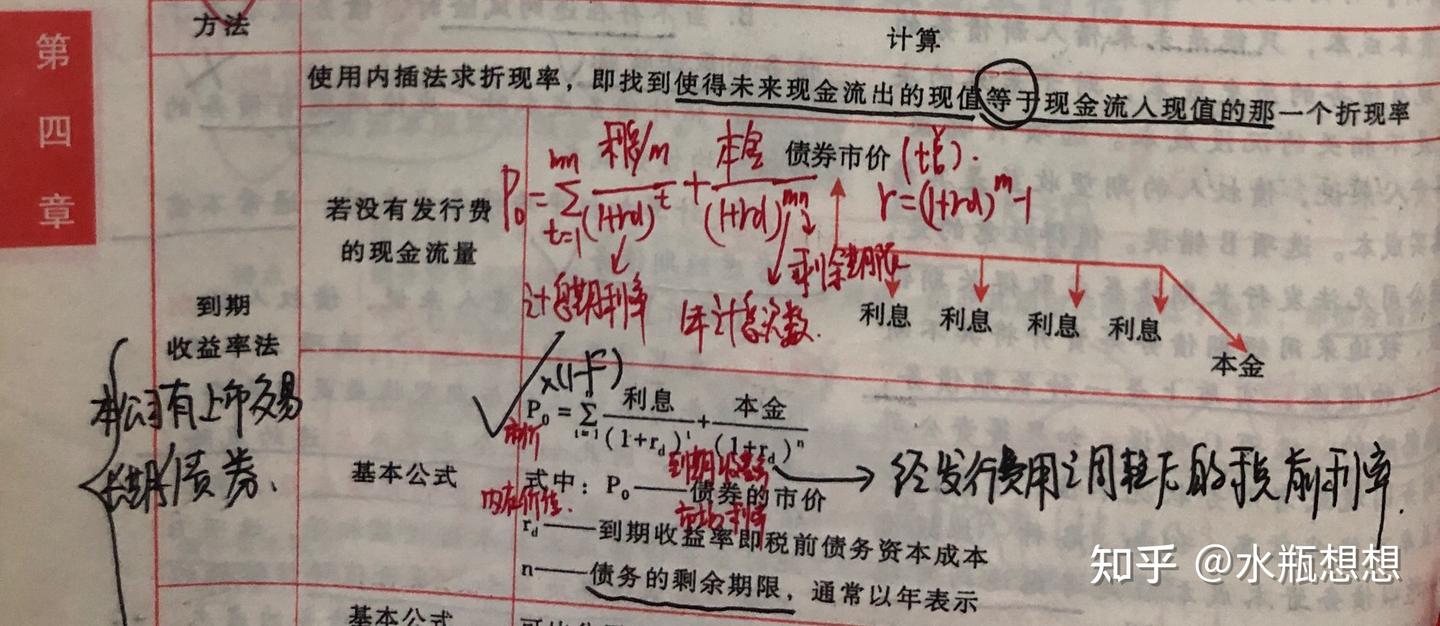 第四章
方法
计算
使用内插法求折现率，即找到使得未来现金流出的现值等于现金流入现值的那一个折现率
若没有发行费
的现金流量
P₀=∑(t=1, mn) 利息/m/(1+rd)^t + 本金/(1+rd)^mn
债券市价(十七).
r=(1+rd)^m-1
计息期利率
1年计息次数.
剩余期限
利息 利息 利息 利息
本金
到期
收益率法
本公司有上市交易
长期债券、
基本公式
×(1-F)
P₀=∑(t=1) 利息/(1+r_d)^t + 本金/(1+r_d)^n
市价
到期收益率
经发行费用调整后的税前利率.
式中：P₀——债券的市价
内在价值.
市场利率
r_d——到期收益率即税前债务资本成本
n——债务的剩余期限，通常以年表示
基本公式
知乎 @水瓶想想